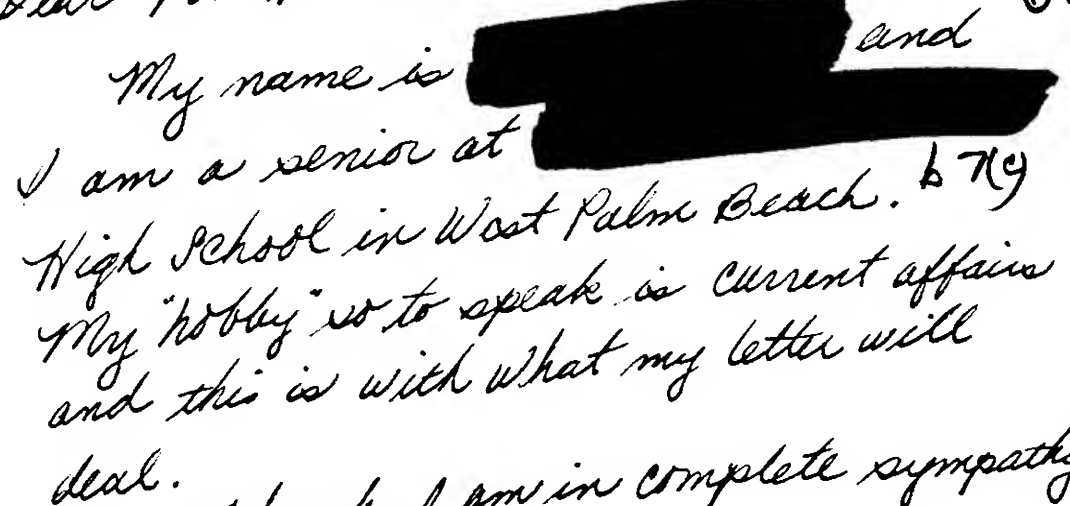 Dear
My name is and
I am a senior at
High School in West Palm Beach. b7C
My "hobby" so to speak is current affairs
and this is with what my letter will
deal.
I am in complete sympathy